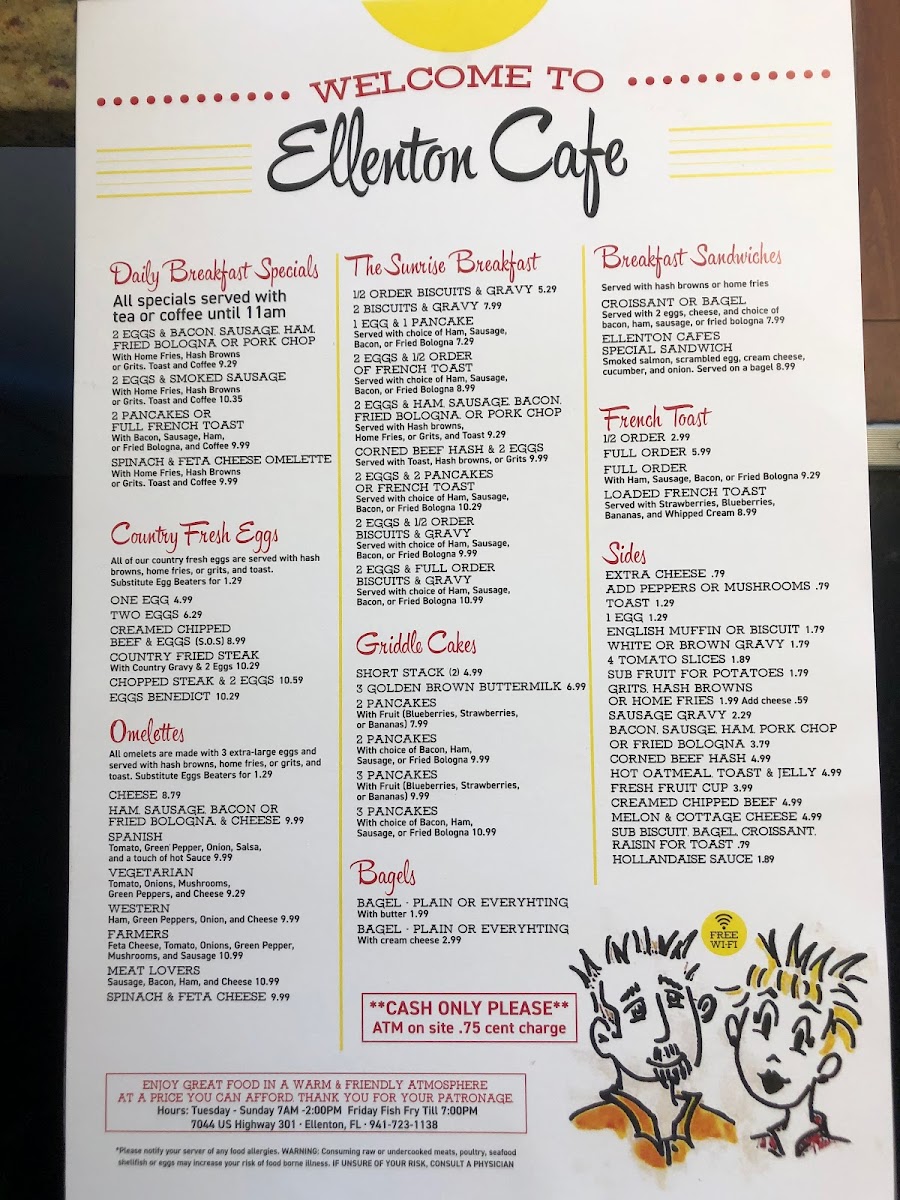 WELCOME TO
Ellenton Cafe
Daily Breakfast Specials
All specials served with
tea or coffee until 11am
2 EGGS & BACON, SAUSAGE, HAM,
FRIED BOLOGNA OR PORK CHOP
With Home Fries, Hash Browns
or Grits. Toast and Coffee 9.29
2 EGGS & SMOKED SAUSAGE
With Home Fries, Hash Browns
or Grits. Toast and Coffee 10.35
2 PANCAKES OR
FULL FRENCH TOAST
With Bacon, Sausage, Ham,
or Fried Bologna, and Coffee 9.99
SPINACH & FETA CHEESE OMELETTE
With Home Fries, Hash Browns
or Grits. Toast and Coffee 9.99
Country Fresh Eggs
All of our country fresh eggs are served with hash
browns, home fries, or grits, and toast.
Substitute Egg Beaters for 1.29
ONE EGG 4.99
TWO EGGS 6.29
CREAMED CHIPPED
BEEF & EGGS (S.O.S) 8.99
COUNTRY FRIED STEAK
With Country Gravy & 2 Eggs 10.29
CHOPPED STEAK & 2 EGGS 10.59
EGGS BENEDICT 10.29
Omelettes
All omelets are made with 3 extra-large eggs and
served with hash browns, home fries, or grits, and
toast. Substitute Eggs Beaters for 1.29
CHEESE 8.79
HAM, SAUSAGE, BACON OR
FRIED BOLOGNA, & CHEESE 9.99
SPANISH
Tomato, Green Pepper, Onion, Salsa,
and a touch of hot Sauce 9.99
VEGETARIAN
Tomato, Onions, Mushrooms,
Green Peppers, and Cheese 9.29
WESTERN
Ham, Green Peppers, Onion, and Cheese 9.99
FARMERS
Feta Cheese, Tomato, Onions, Green Pepper,
Mushrooms, and Sausage 10.99
MEAT LOVERS
Sausage, Bacon, Ham, and Cheese 10.99
SPINACH & FETA CHEESE 9.99
The Sunrise Breakfast
1/2 ORDER BISCUITS & GRAVY 5.29
2 BISCUITS & GRAVY 7.99
1 EGG & 1 PANCAKE
Served with choice of Ham, Sausage,
Bacon, or Fried Bologna 7.29
2 EGGS & 1/2 ORDER
OF FRENCH TOAST
Served with choice of Ham, Sausage,
Bacon, or Fried Bologna 8.99
2 EGGS & HAM, SAUSAGE, BACON,
FRIED BOLOGNA, OR PORK CHOP
Served with Hash browns,
Home Fries, or Grits, and Toast 9.29
CORNED BEEF HASH & 2 EGGS
Served with Toast, Hash browns, or Grits 9.99
2 EGGS & 2 PANCAKES
OR FRENCH TOAST
Served with choice of Ham, Sausage,
Bacon, or Fried Bologna 10.29
2 EGGS & 1/2 ORDER
BISCUITS & GRAVY
Served with choice of Ham, Sausage,
Bacon, or Fried Bologna 9.99
2 EGGS & FULL ORDER
BISCUITS & GRAVY
Served with choice of Ham, Sausage,
Bacon, or Fried Bologna 10.99
Griddle Cakes
SHORT STACK (2) 4.99
3 GOLDEN BROWN BUTTERMILK 6.99
2 PANCAKES
With Fruit (Blueberries, Strawberries,
or Bananas) 7.99
2 PANCAKES
With choice of Bacon, Ham,
Sausage, or Fried Bologna 9.99
3 PANCAKES
With Fruit (Blueberries, Strawberries,
or Bananas) 9.99
3 PANCAKES
With choice of Bacon, Ham,
Sausage, or Fried Bologna 10.99
Bagels
BAGEL - PLAIN OR EVERYHTING
With butter 1.99
BAGEL - PLAIN OR EVERYHTING
With cream cheese 2.99
**CASH ONLY PLEASE**
ATM on site .75 cent charge
Breakfast Sandwiches
Served with hash browns or home fries
CROISSANT OR BAGEL
Served with 2 eggs, cheese, and choice of
bacon, ham, sausage, or fried bologna 7.99
ELLENTON CAFE'S
SPECIAL SANDWICH
Smoked salmon, scrambled egg, cream cheese,
cucumber, and onion. Served on a bagel 8.99
French Toast
1/2 ORDER 2.99
FULL ORDER 5.99
FULL ORDER
With Ham, Sausage, Bacon, or Fried Bologna 9.29
LOADED FRENCH TOAST
Served with Strawberries, Blueberries,
Bananas, and Whipped Cream 8.99
Sides
EXTRA CHEESE .79
ADD PEPPERS OR MUSHROOMS .79
TOAST 1.29
1 EGG 1.29
ENGLISH MUFFIN OR BISCUIT 1.79
WHITE OR BROWN GRAVY 1.79
4 TOMATO SLICES 1.89
SUB FRUIT FOR POTATOES 1.79
GRITS, HASH BROWNS
OR HOME FRIES 1.99 Add cheese .59
SAUSAGE GRAVY 2.29
BACON, SAUSGE, HAM, PORK CHOP
OR FRIED BOLOGNA 3.79
CORNED BEEF HASH 4.99
HOT OATMEAL, TOAST & JELLY 4.99
FRESH FRUIT CUP 3.99
CREAMED CHIPPED BEEF 4.99
MELON & COTTAGE CHEESE 4.99
SUB BISCUIT, BAGEL, CROISSANT,
RAISIN FOR TOAST .79
HOLLANDAISE SAUCE 1.89
FREE
WI-FI
ENJOY GREAT FOOD IN A WARM & FRIENDLY ATMOSPHERE
AT A PRICE YOU CAN AFFORD. THANK YOU FOR YOUR PATRONAGE
Hours: Tuesday - Sunday 7AM -2:00PM Friday Fish Fry Till 7:00PM
7044 US Highway 301 · Ellenton, FL · 941-723-1138
*Please notify your server of any food allergies. WARNING: Consuming raw or undercooked meats, poultry, seafood
shellfish or eggs may increase your risk of food borne illness. IF UNSURE OF YOUR RISK, CONSULT A PHYSICIAN